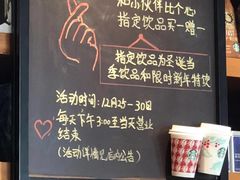 和小伙伴比个心
指定饮品买一赠一
指定饮品为圣诞当
季饮品和限时新年特饮
活动时间:12月25-30日
每天下午3:00至当天营业
结束
(活动详情见店内公告)